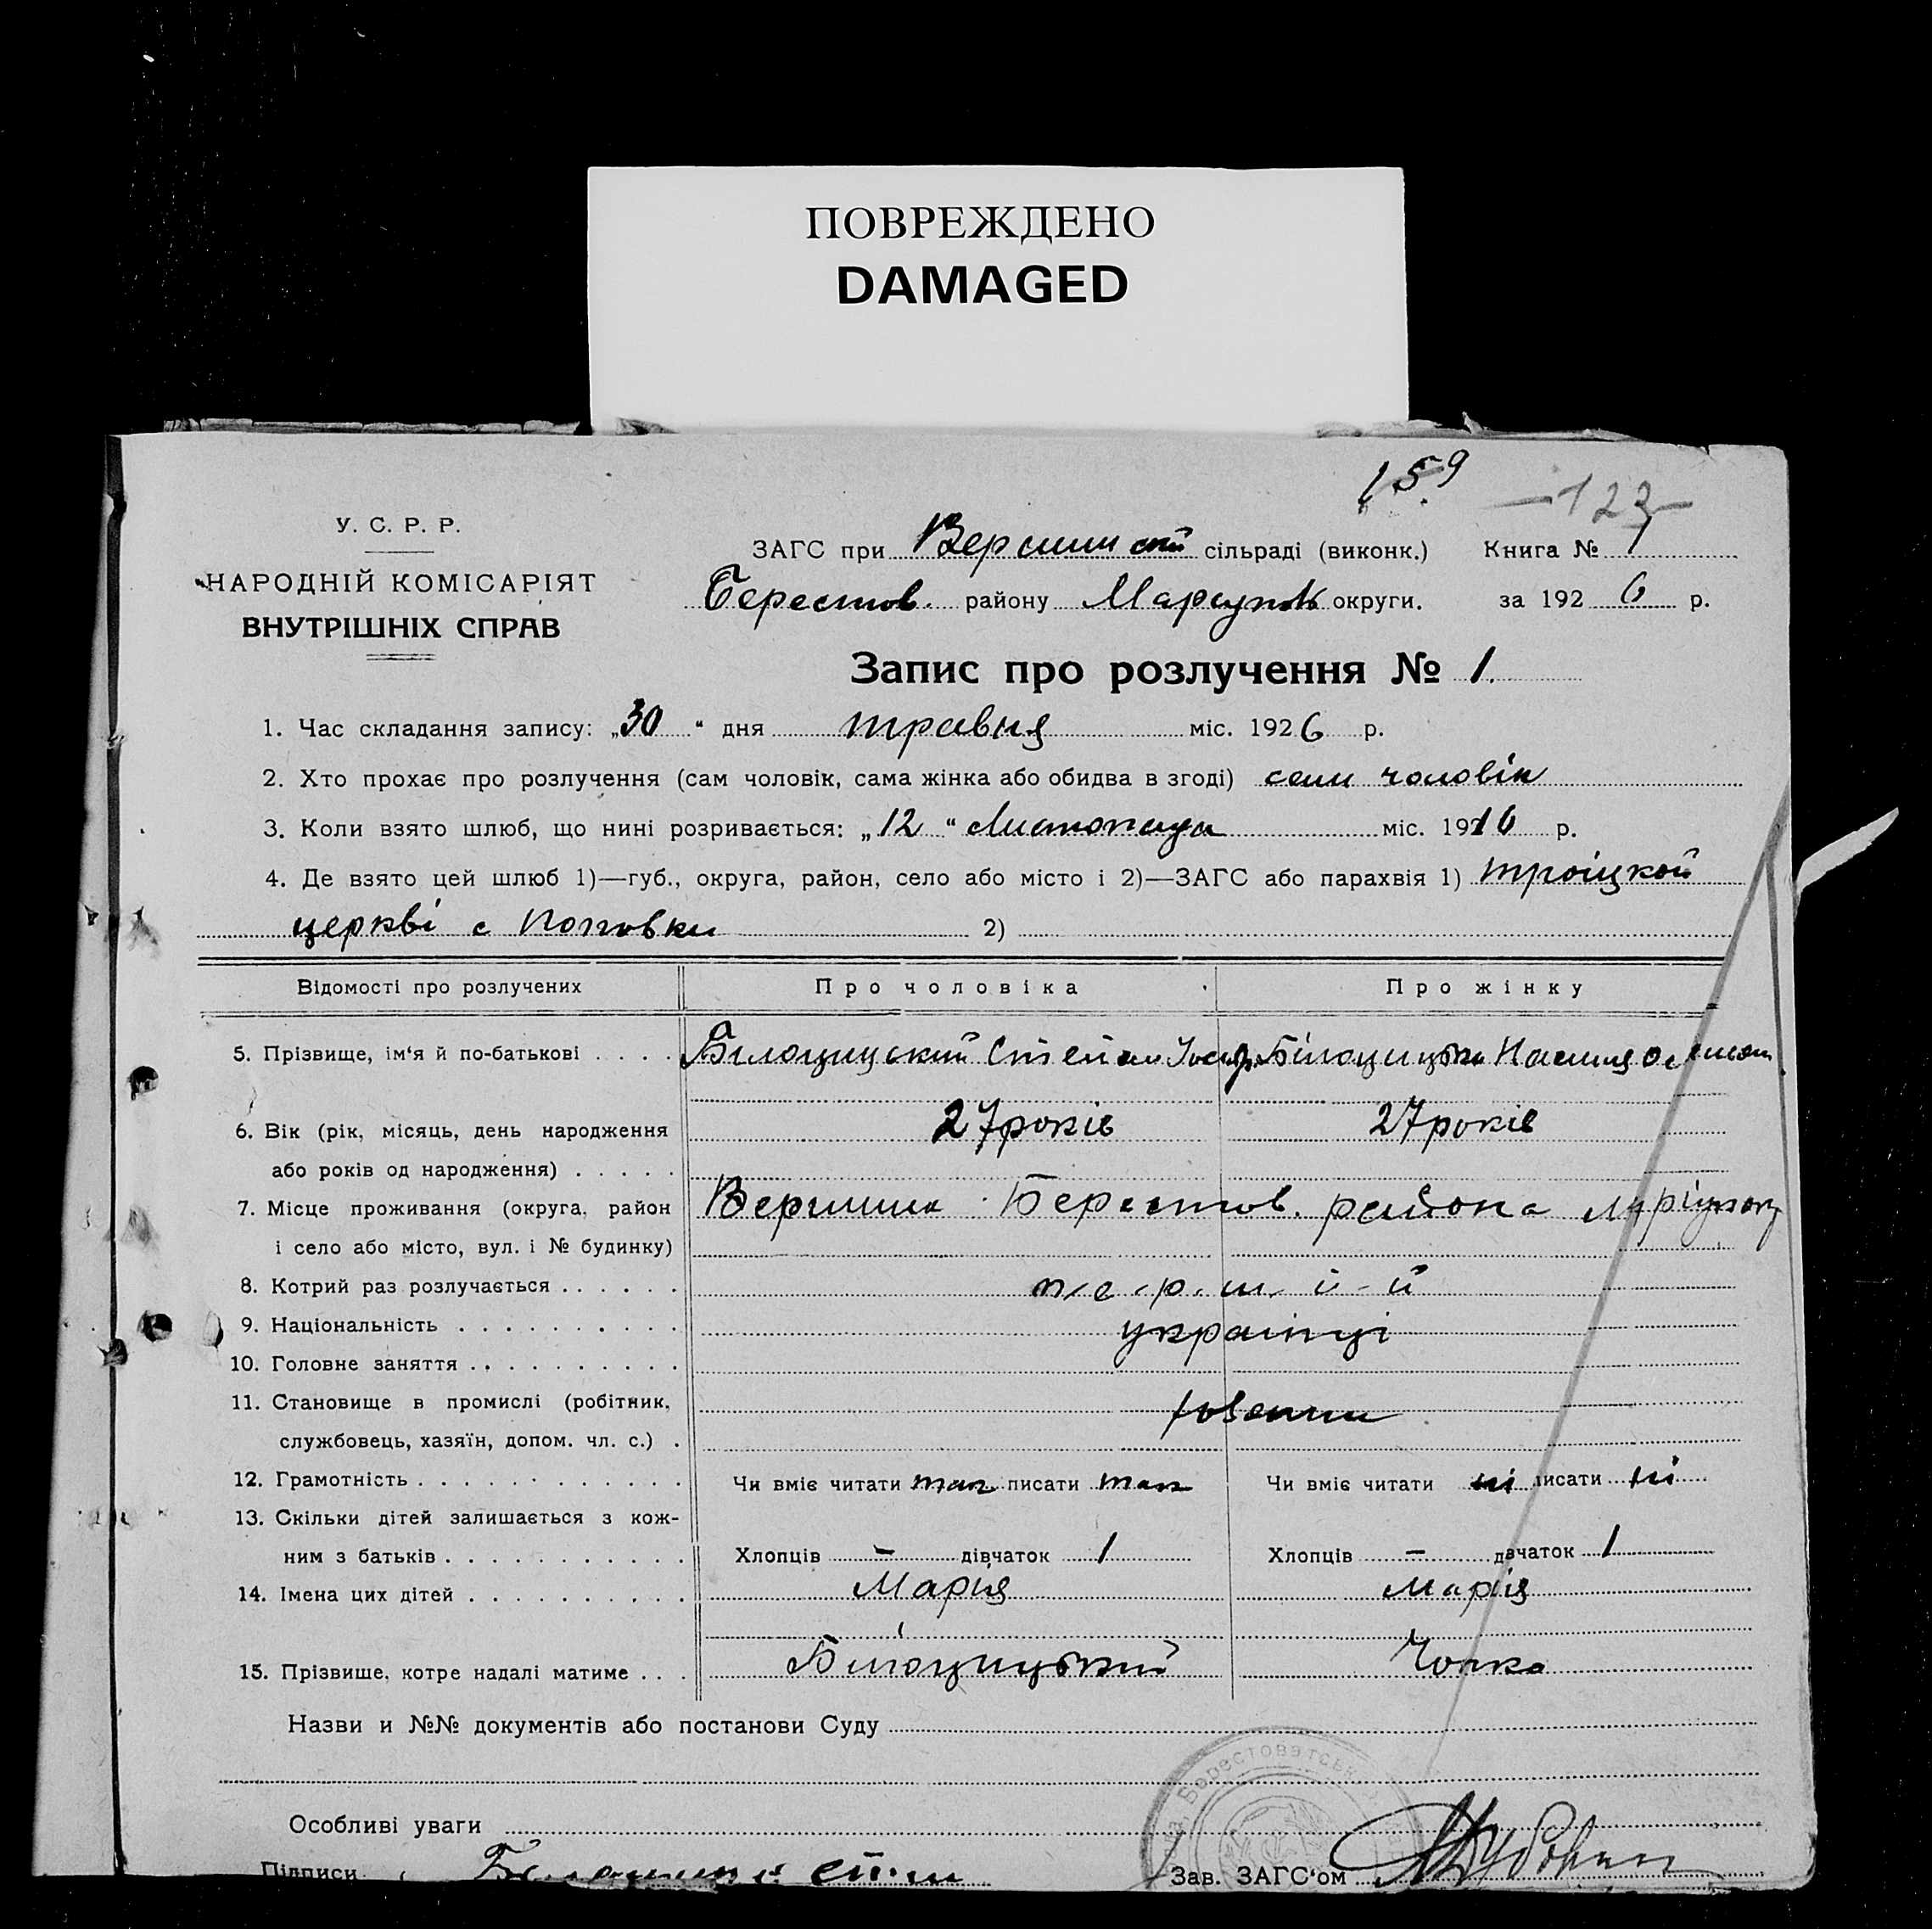 ПОВРЕЖДЕНО
DAMAGED
159
-123-
У. С. Р. Р.
НАРОДНІЙ КОМІСАРІЯТ
ВНУТРІШНІХ СПРАВ
ЗАГС при сільраді (виконк.) Книга № 1
Берестов. району округи. за 1926 р.
Запис про розлучення № 1.
1. Час складання запису: „30“ дня травня міс. 1926 р.
2. Хто прохає про розлучення (сам чоловік, сама жінка або обидва в згоді) сам чоловік
3. Коли взято шлюб, що нині розривається: „12“ Листопада міс. 19 р.
4. Де взято цей шлюб 1)—губ., округа, район, село або місто і 2)—ЗАГС або парахвія 1) троіцкой
церкві с Поповки 2)
Відомості про розлучених Про чоловіка Про жінку
5. Прізвище, ім‘я й по-батькові . . . . Білоцицька Настя
6. Вік (рік, місяць, день народження 27 років 27 років
або років од народження) . . . . .
7. Місце проживання (округа, район Вершина Берестов. района
і село або місто, вул. і № будинку)
8. Котрий раз розлучається . . . . . . п.е.р.ш.і-й
9. Національність . . . . . . . . . . українці
10. Головне заняття . . . . . . . . . .
11. Становище в промислі (робітник,
службовець, хазяїн, допом. чл. с.) .
12. Грамотність . . . . . . . . . . . . Чи вміє читати так писати так Чи вміє читати ні писати ні
13. Скільки дітей залишається з кож-
ним з батьків . . . . . . . . . . . Хлопців – дівчаток 1 Хлопців – дівчаток 1
14. Імена цих дітей . . . . . . . . . . Марія Марія
15. Прізвище, котре надалі матиме . . . Білоцицький Чопка
Назви и №№ документів або постанови Суду
Особливі уваги
Підписи
Зав. ЗАГС‘ом